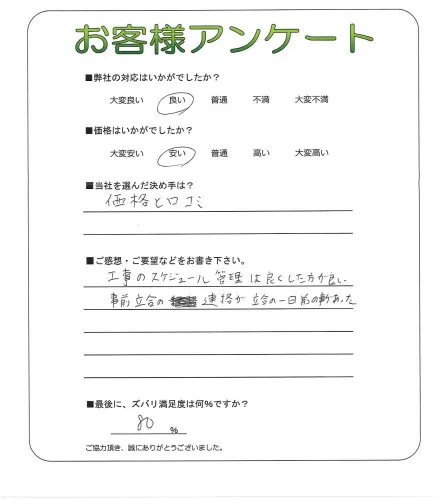 お客様アンケート
■弊社の対応はいかがでしたか？
大変良い 良い 普通 不満 大変不満
■価格はいかがでしたか？
大変安い 安い 普通 高い 大変高い
■当社を選んだ決め手は？
価格と口コミ
■ご感想・ご要望などをお書き下さい。
工事のスケジュール管理は良くした方が良い
事前立合の 連絡が 立合の一日前の
■最後に、ズバリ満足度は何％ですか？
80 ％
ご協力頂き、誠にありがとうございました。